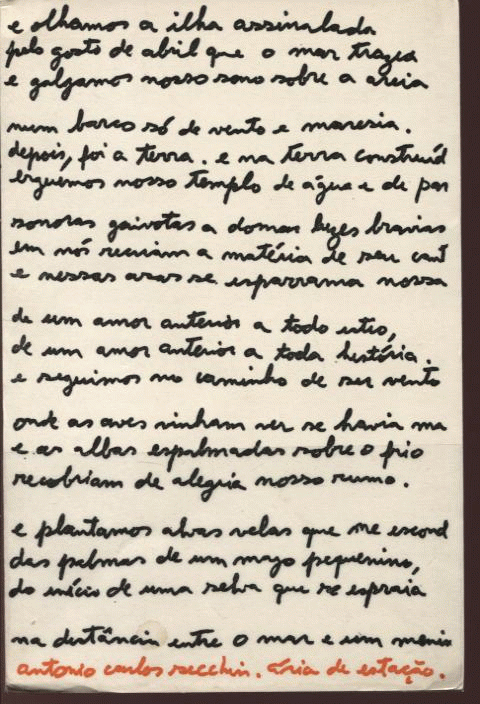 e olhamos a ilha assinalada
pelo gosto de abril que o mar trazia
e galgamos nosso sono sobre a areia
num barco só de vento e maresia.
depois, foi a terra. e na terra construíd
erguemos nosso templo de água e de par
sonoras gaivotas a domar luzes bravias
em nós recriam a matéria de seu cant
e nessas asas se esparrama nossa
de um amor anterior a todo estio,
de um amor anterior a toda história.
e seguimos no caminho de ser vento
onde as aves vinham ver se havia ma
e as albas espalmadas sobre o frio
recobriam de alegria nosso rumo.
e plantamos alvas velas que se escond
das palmas de um março pequenino,
do início de uma relva que se espraia
na distância entre o mar e um menin
antonio carlos secchin. ária de estação.